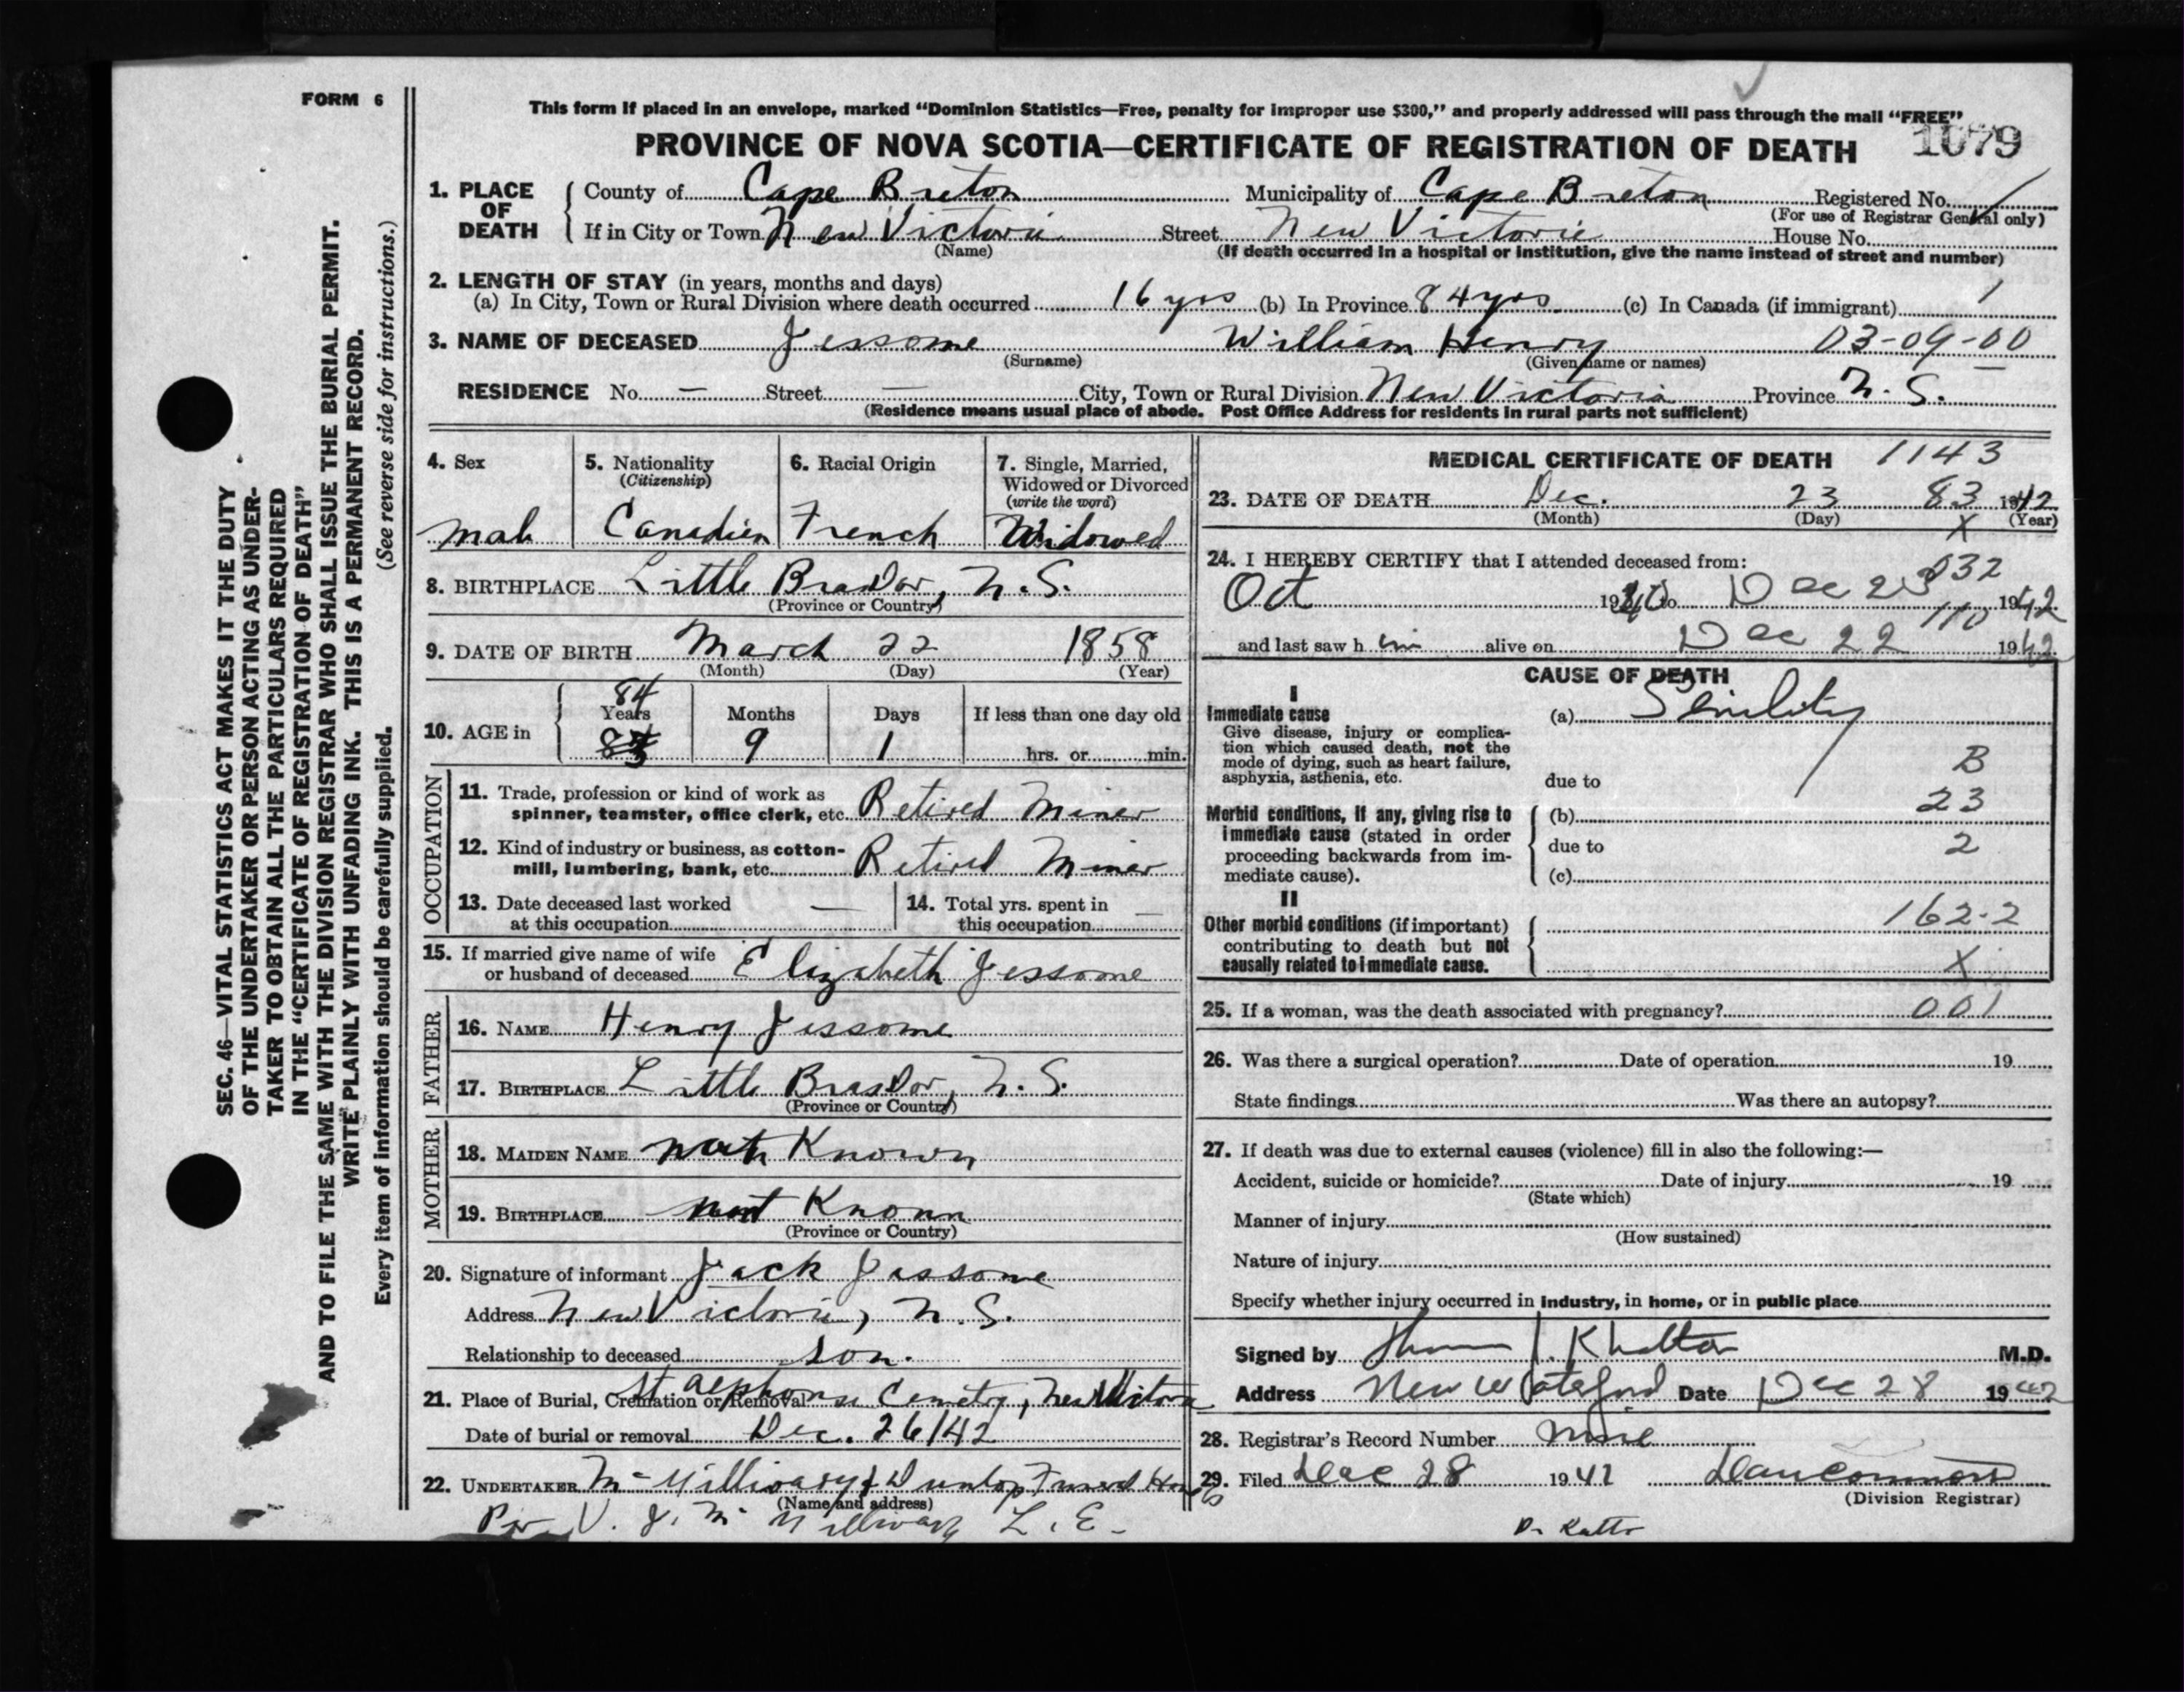 FORM 6
This form if placed in an envelope, marked “Dominion Statistics—Free, penalty for improper use $300,” and properly addressed will pass through the mail “FREE”
PROVINCE OF NOVA SCOTIA—CERTIFICATE OF REGISTRATION OF DEATH 1079
1. PLACE OF DEATH
County of Cape Breton Municipality of Cape Breton Registered No.
(For use of Registrar General only)
If in City or Town New Victoria Street New Victoria House No.
(Name) (If death occurred in a hospital or institution, give the name instead of street and number)
2. LENGTH OF STAY (in years, months and days)
(a) In City, Town or Rural Division where death occurred 16 yrs (b) In Province 84 yrs (c) In Canada (if immigrant) 1
3. NAME OF DECEASED Jessome William Henry 03-09-00
(Surname) (Given name or names)
RESIDENCE No. — Street — City, Town or Rural Division New Victoria Province N.S.
(Residence means usual place of abode. Post Office Address for residents in rural parts not sufficient)
4. Sex
male
5. Nationality
(Citizenship)
Canadien
6. Racial Origin
French
7. Single, Married,
Widowed or Divorced
(write the word)
Widowed
8. BIRTHPLACE Little Brasdor, N.S.
(Province or Country)
9. DATE OF BIRTH March 22 1858
(Month) (Day) (Year)
10. AGE in
84
Years Months Days If less than one day old
9 1 hrs. or min.
OCCUPATION
11. Trade, profession or kind of work as
spinner, teamster, office clerk, etc. Retired Miner
12. Kind of industry or business, as cotton-
mill, lumbering, bank, etc. Retired Miner
13. Date deceased last worked
at this occupation —
14. Total yrs. spent in
this occupation —
15. If married give name of wife
or husband of deceased Elizabeth Jessome
FATHER
16. NAME Henry Jessome
17. BIRTHPLACE Little Brasdor, N.S.
(Province or Country)
MOTHER
18. MAIDEN NAME not Known
19. BIRTHPLACE not Known
(Province or Country)
20. Signature of informant Jack Jessome
Address New Victoria, N.S.
Relationship to deceased son.
21. Place of Burial, Cremation or Removal St Cemetry, New Victoria
Date of burial or removal Dec. 26/42
22. UNDERTAKER McGillivary & Dunlop Funeral Home
(Name and address)
Per V. J. McGillivary L.E.
MEDICAL CERTIFICATE OF DEATH 1143
23. DATE OF DEATH Dec. 23 83 1942
(Month) (Day) X (Year)
24. I HEREBY CERTIFY that I attended deceased from: 032
Oct 1940 to Dec 23 1942
110
and last saw him alive on Dec 22 1942
CAUSE OF DEATH
I
Immediate cause
Give disease, injury or complica-
tion which caused death, not the
mode of dying, such as heart failure,
asphyxia, asthenia, etc.
(a) Senility
B
due to
Morbid conditions, if any, giving rise to
immediate cause (stated in order
proceeding backwards from im-
mediate cause).
23
(b)
due to 2
(c)
II
Other morbid conditions (if important)
contributing to death but not
causally related to immediate cause.
162-2
X
25. If a woman, was the death associated with pregnancy? 001
26. Was there a surgical operation? Date of operation 19
State findings Was there an autopsy?
27. If death was due to external causes (violence) fill in also the following:—
Accident, suicide or homicide? Date of injury 19
(State which)
Manner of injury
(How sustained)
Nature of injury
Specify whether injury occurred in industry, in home, or in public place
Signed by M.D.
Address New Waterford Date Dec 28 1942
28. Registrar's Record Number
29. Filed Dec 28 1942
(Division Registrar)
SEC. 46—VITAL STATISTICS ACT MAKES IT THE DUTY
OF THE UNDERTAKER OR PERSON ACTING AS UNDER-
TAKER TO OBTAIN ALL THE PARTICULARS REQUIRED
IN THE “CERTIFICATE OF REGISTRATION OF DEATH”
AND TO FILE THE SAME WITH THE DIVISION REGISTRAR WHO SHALL ISSUE THE BURIAL PERMIT.
WRITE PLAINLY WITH UNFADING INK. THIS IS A PERMANENT RECORD.
Every item of information should be carefully supplied. (See reverse side for instructions.)